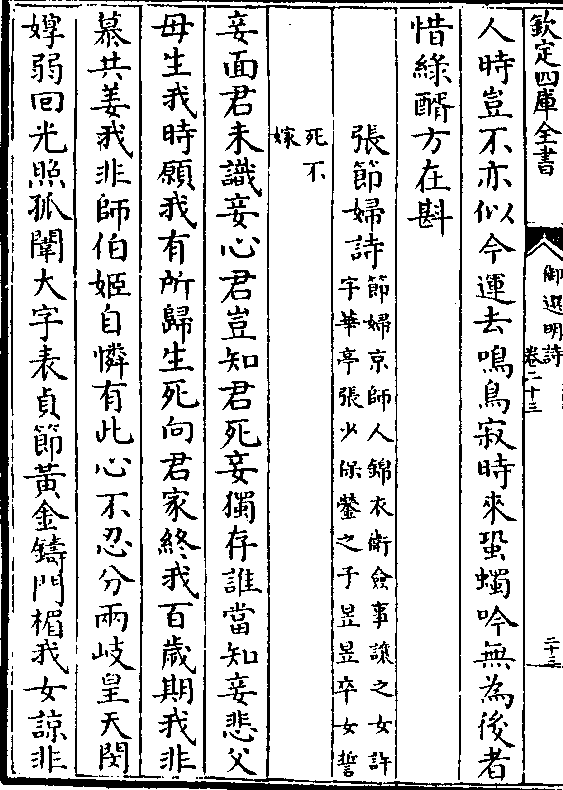 欽定四庫全書
御選明詩
卷二十三
二十三
人時豈不亦似今運去鳴鳥寂時來蛩蠋吟無為後者
惜綠醑方在斟
張節婦詩
節婦京師人錦衣衛僉事讓之女許
字華亭張少保鎣之子昱昱卒女誓
死不
嫁
妾面君未識妾心君豈知君死妾獨存誰當知妾悲父
母生我時願我有所歸生死向君家終我百歲期我非
慕共姜我非師伯姬自憐有此心不忍分兩岐皇天閔
嫥弱回光照孤闈大字表貞節黃金鑄門楣我女諒非